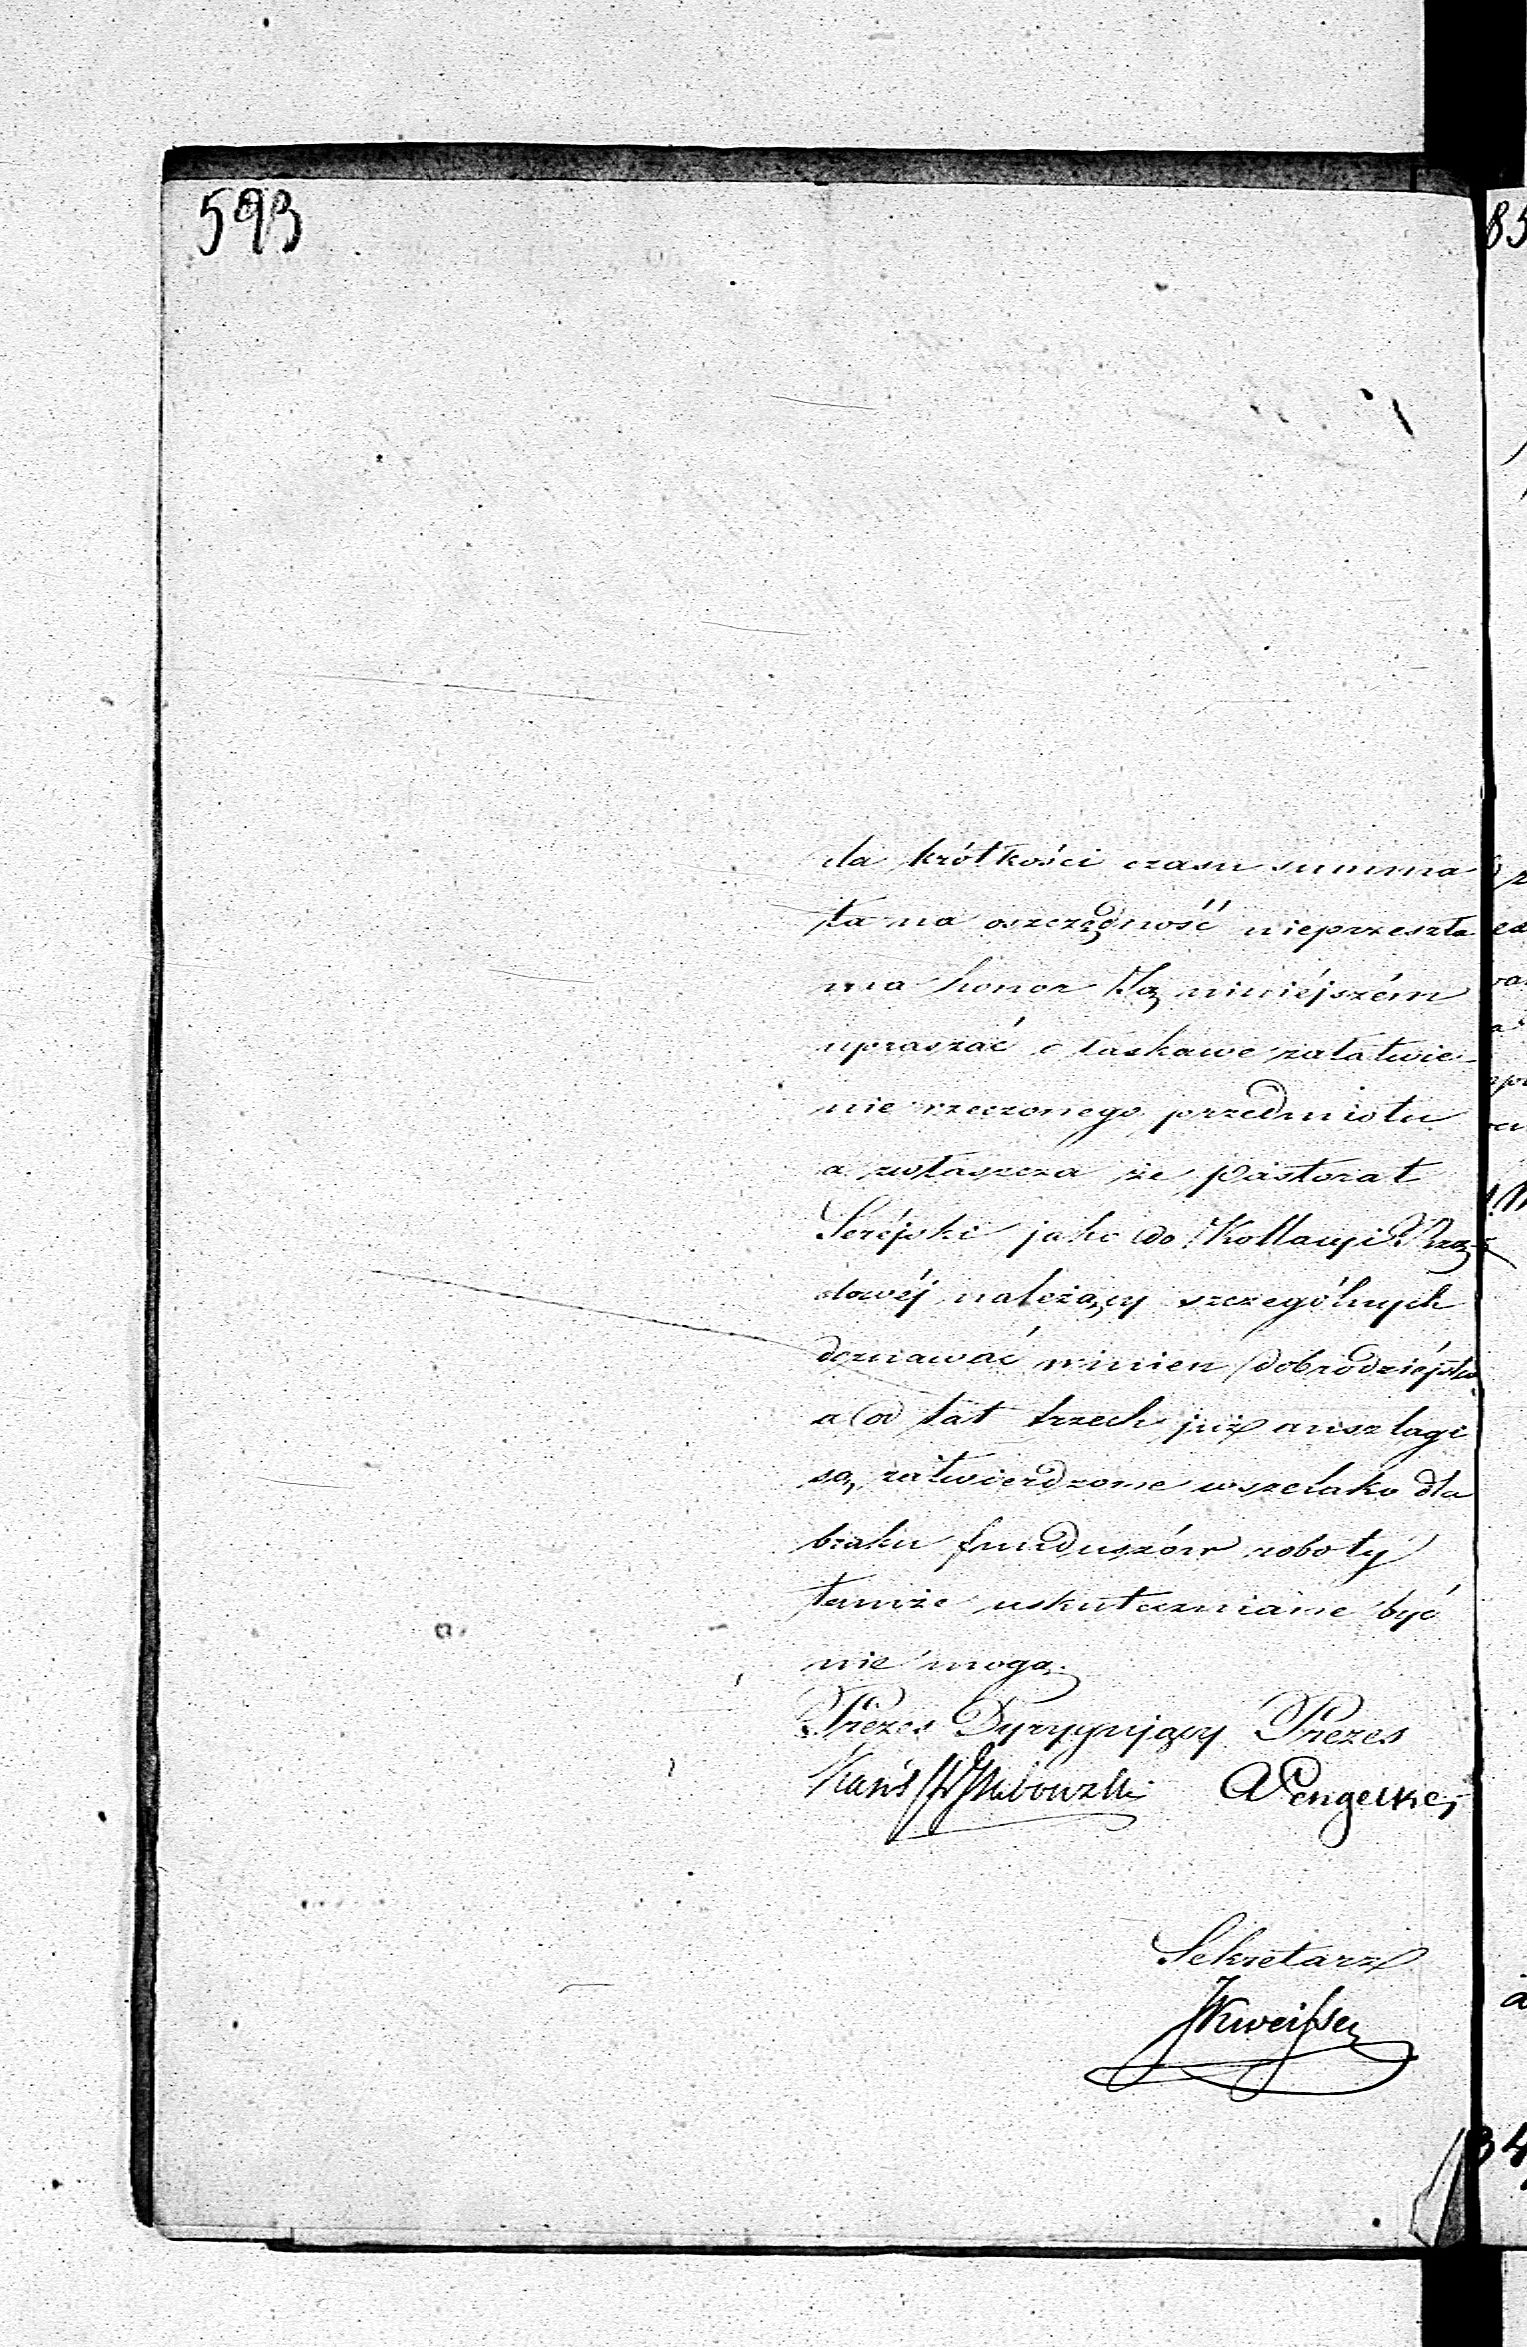 593
dla krótkości czasu summa
ta na oszczędność nieprzeszła
ma honor Ją niniéjszém
upraszać o łaskawe załatwie-
nie rzeczonego przedmiotu
a zwłaszcza że Pastorat
Seréjski jako do Kollacyi Rzą-
dowéj należący szczególnych
doznawać winien dobrodziéjstw
a od lat trzech już anszlagi
są zatwierdzone wszelako dla
braku funduszów roboty
tamże uskuteczniane być
nie mogą.
Prezes Dyrygujący Prezes
Sekretarz